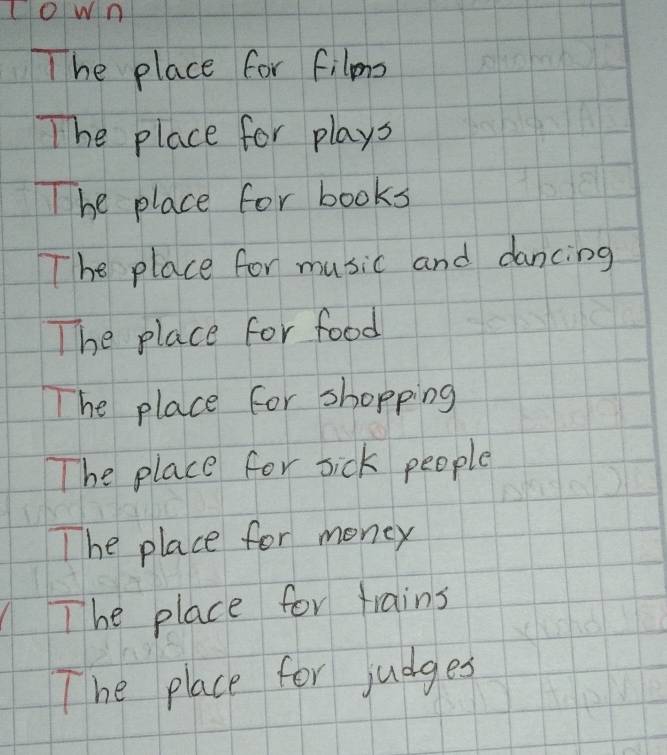 Town
The place for films
The place for plays
The place for books
The place for music and dancing
The place for food
The place for shopping
The place for sick people
The place for money
The place for trains
The place for judges